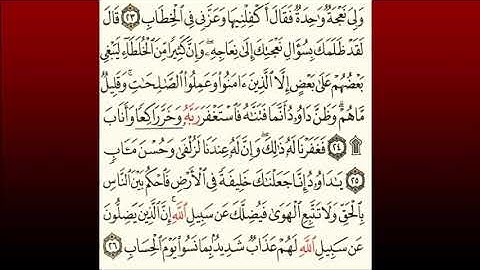 وَلِىَ نَعْجَةٌ وَٰحِدَةٌ فَقَالَ أَكْفِلْنِيهَا وَعَزَّنِى فِى ٱلْخِطَابِ ٢٣ قَالَ
لَقَدْ ظَلَمَكَ بِسُؤَالِ نَعْجَتِكَ إِلَىٰ نِعَاجِهِۦ ۖ وَإِنَّ كَثِيرًا مِّنَ ٱلْخُلَطَآءِ لَيَبْغِى
بَعْضُهُمْ عَلَىٰ بَعْضٍ إِلَّا ٱلَّذِينَ ءَامَنُوا۟ وَعَمِلُوا۟ ٱلصَّٰلِحَٰتِ وَقَلِيلٌ
مَّا هُمْ ۗ وَظَنَّ دَاوُۥدُ أَنَّمَا فَتَنَّٰهُ فَٱسْتَغْفَرَ رَبَّهُۥ وَخَرَّ رَاكِعًا وَأَنَابَ
۩ ٢٤ فَغَفَرْنَا لَهُۥ ذَٰلِكَ ۖ وَإِنَّ لَهُۥ عِندَنَا لَزُلْفَىٰ وَحُسْنَ مَـَٔابٍ
٢٥ يَٰدَاوُۥدُ إِنَّا جَعَلْنَٰكَ خَلِيفَةً فِى ٱلْأَرْضِ فَٱحْكُم بَيْنَ ٱلنَّاسِ
بِٱلْحَقِّ وَلَا تَتَّبِعِ ٱلْهَوَىٰ فَيُضِلَّكَ عَن سَبِيلِ ٱللَّهِ ۚ إِنَّ ٱلَّذِينَ يَضِلُّونَ
عَن سَبِيلِ ٱللَّهِ لَهُمْ عَذَابٌ شَدِيدٌۢ بِمَا نَسُوا۟ يَوْمَ ٱلْحِسَابِ ٢٦